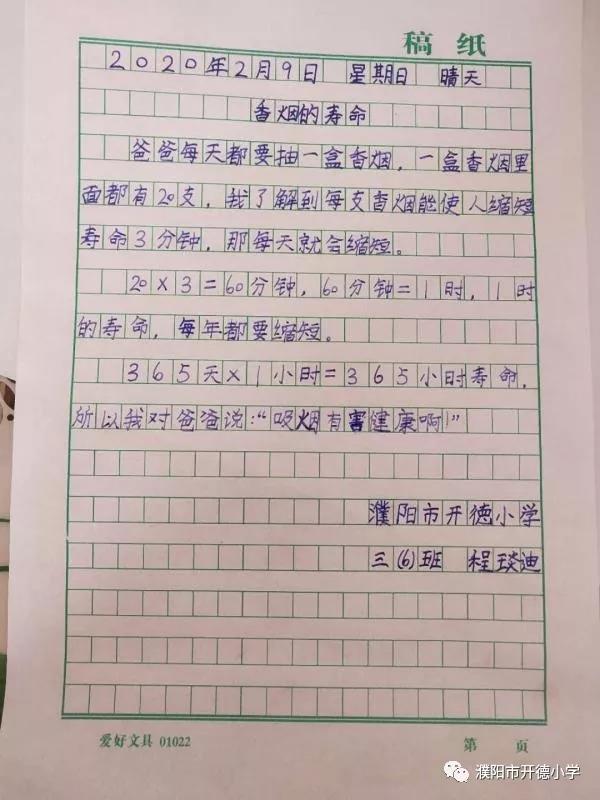 稿纸
2020年2月9日 星期日 晴天
香烟的寿命
爸爸每天都要抽一盒香烟，一盒香烟里
面都有20支，我了解到每支香烟能使人缩短
寿命3分钟，那每天就会缩短。
20×3=60分钟，60分钟=1时，1时
的寿命，每年都要缩短。
365天×1小时=365小时寿命，
所以我对爸爸说：“吸烟有害健康啊！”
濮阳市开德小学
三(6)班 程琰迪
爱好文具 01022 第 页
濮阳市开德小学